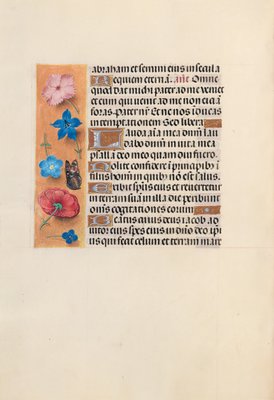 abraham et semini eius in secula
Requiem eternā. añt Omne
quod dat michi pater ad me veniet
et eum qui venit ad me non eiciā
foras. pater nr̄ Et ne nos inducas
in temptationem Sed libera
Lauda aīa mea dnm̄ lau
dabo dnm̄ in vita mea
psallā deo meo quam diu fuero.
Nolite confidere ī principibꝫ ī
filijs hominū in quibꝫ nō est salus.
Exibit spūs eius et revertetur
in terram suā in illa die peribunt
om̄s cogitationes eorum
Beatus cuius deus iacob ad
iutor eius spes eius in dnō deo ipī
us qui fecit celum et terram mare